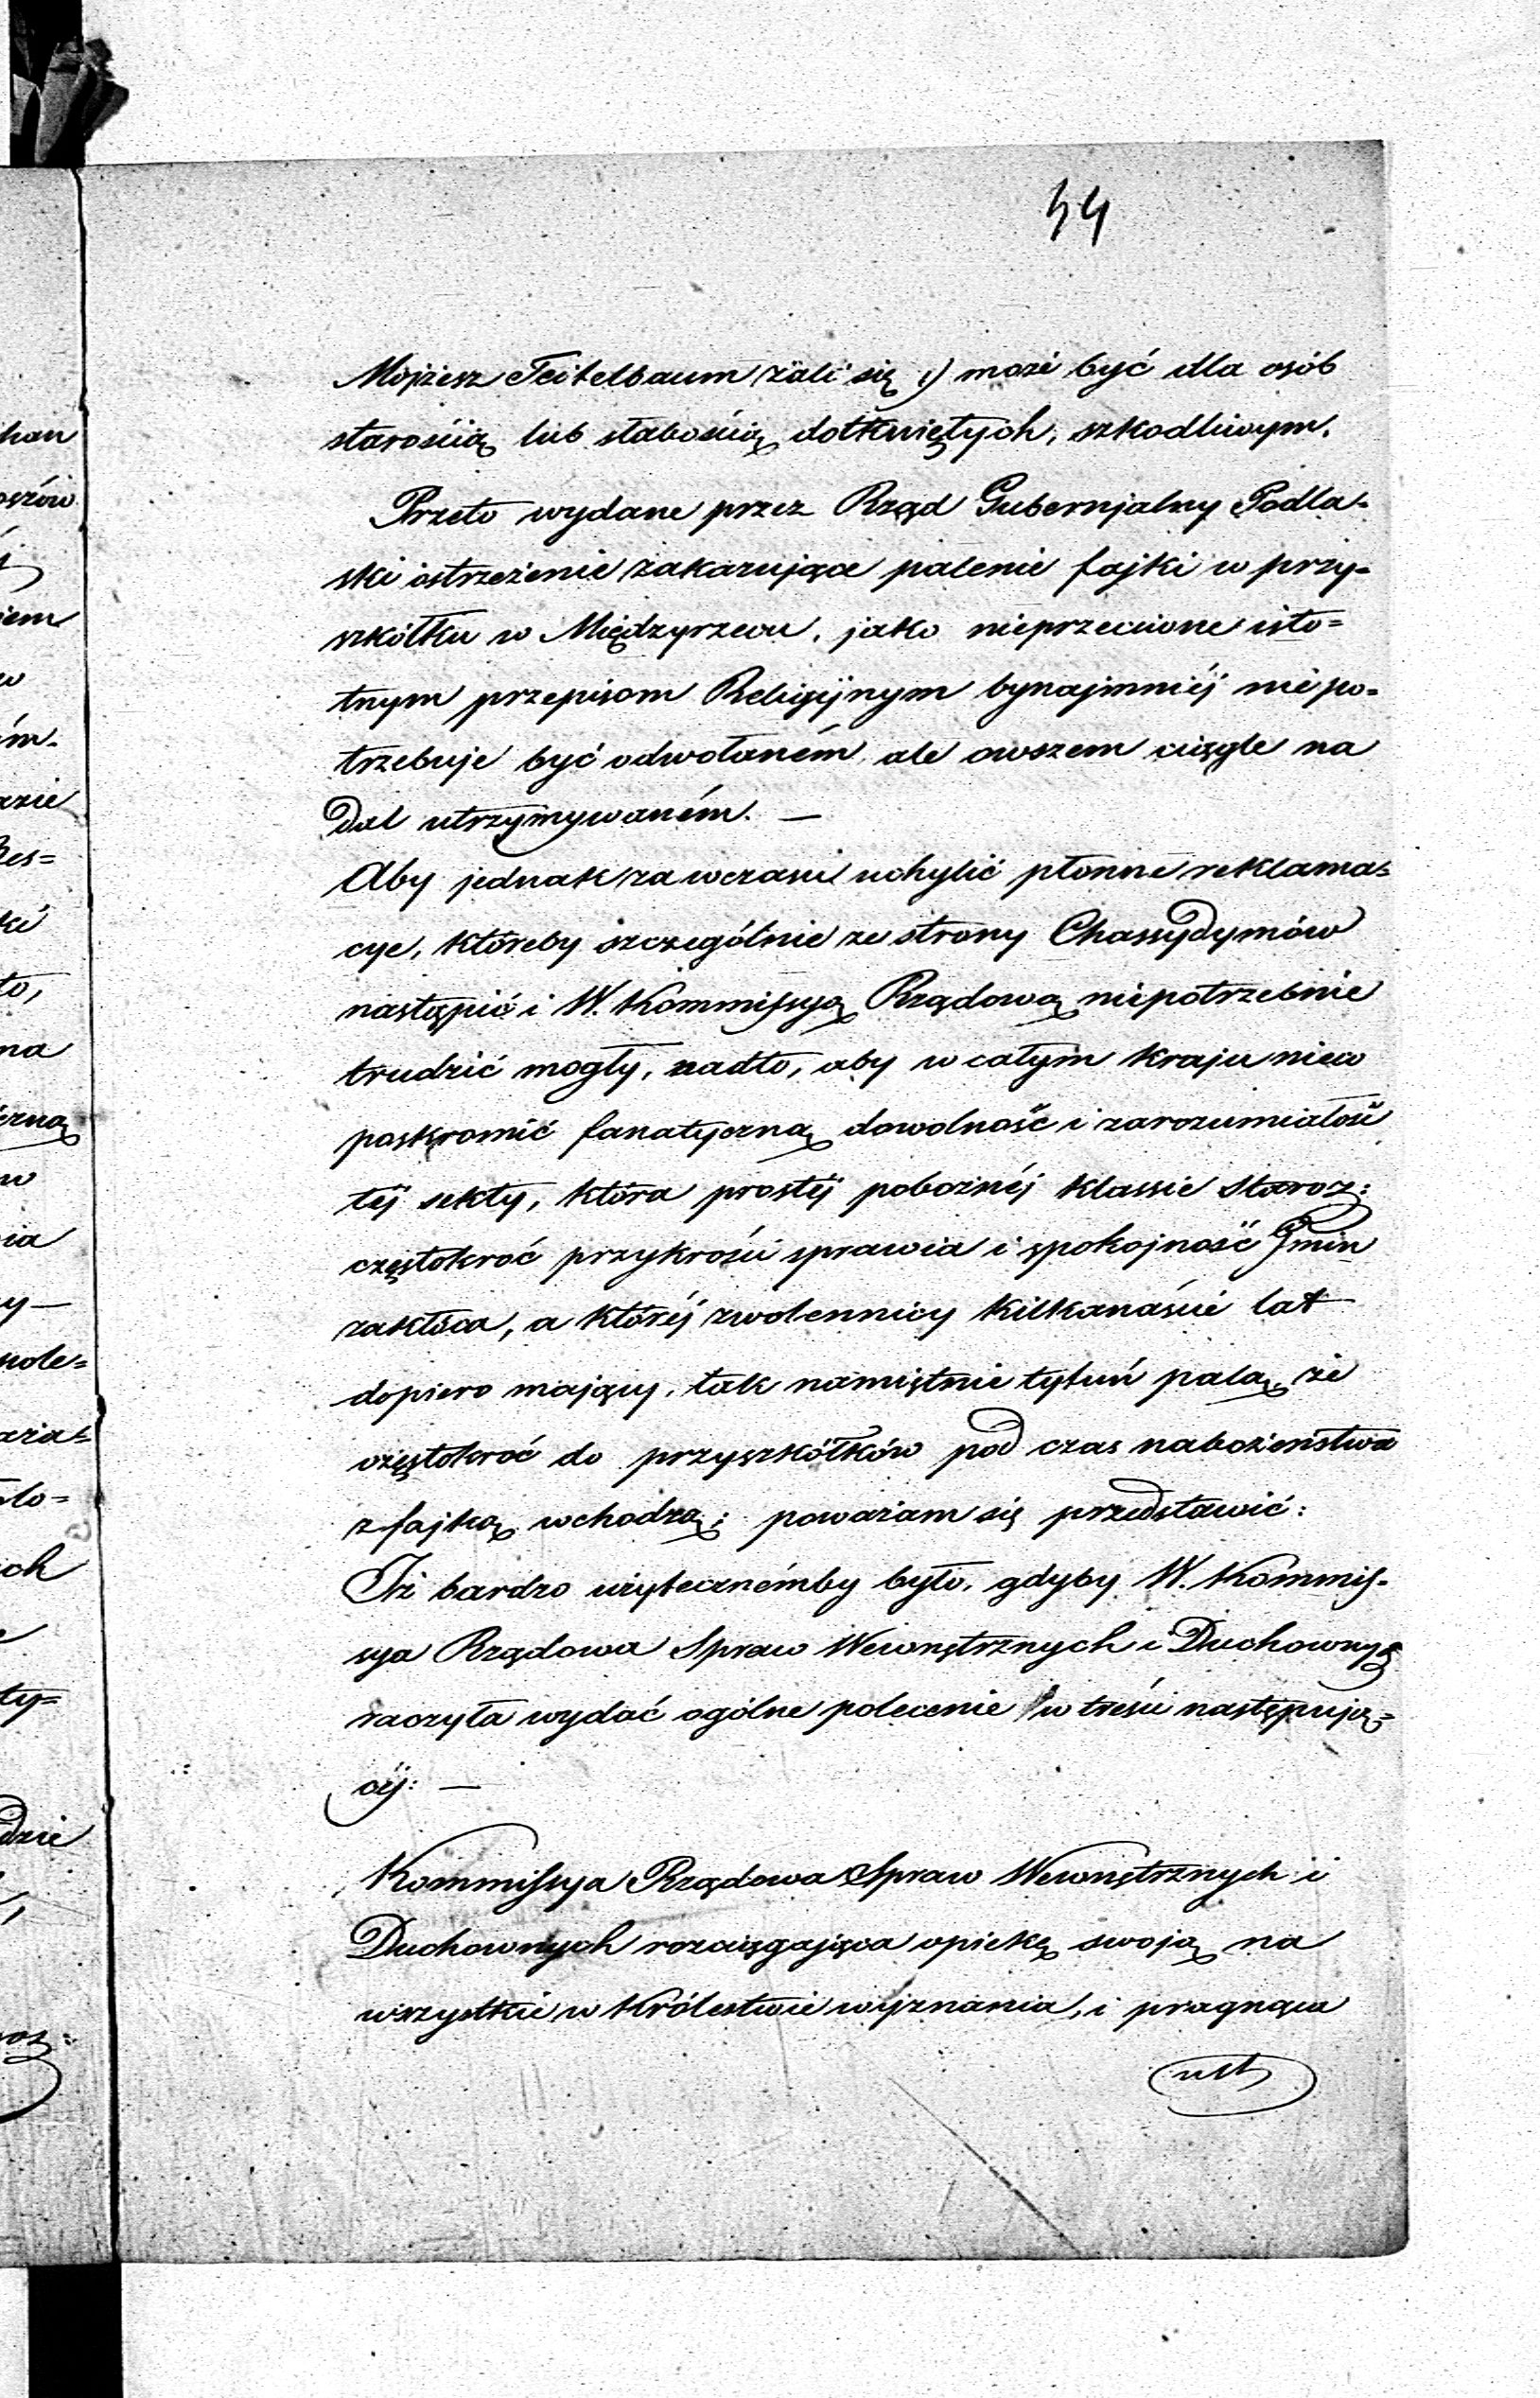 44
Mojżesz Teitelbaum żali się,) może być dla osób
starością lub słabością dotkniętych, szkodliwym.
Przeto wydane przez Rząd Gubernjalny Podla=
ski ostrzeżenie zakazujące palenie fajki w przy=
szkółku w Międzyrzecu, jako nieprzeciwne isto=
tnym przepisom Religijnym bynajmniéj niepo=
trzebuje być odwołaném, ale owszem ciągle na
dal utrzymywaném. —
Aby jednak zawczasu uchylić płonne reklama=
cye, któreby szczególnie ze strony Chassydymów
nastąpić i W. Kommissyą Rządową niepotrzebnie
trudzić mogły, nadto, aby w całym kraju nieco
poskromić fanatyczną dowolność i zarozumiałość
téj sekty, która prostéj pobożnéj klassie Staroz:
częstokroć przykrości sprawia i spokojność Gmin
zakłóca, a któréj zwolennicy kilkanaście lat
dopiero mający, tak namiętnie tytuń palą, że
częstokroć do przyszkółków pod czas nabożeństwa
z fajką wchodzą; poważam się przedstawić:
Iż bardzo użyteczném by było, gdyby W. Kommis=
sya Rządowa Spraw Wewnętrznych i Duchownych
raczyła wydać ogólne polecenie w treści następują=
céj: —
Kommissya Rządowa Spraw Wewnętrznych i
Duchownych rozciągająca opiekę swoją na
wszystkie w Królestwie wyznania, i pragnąca